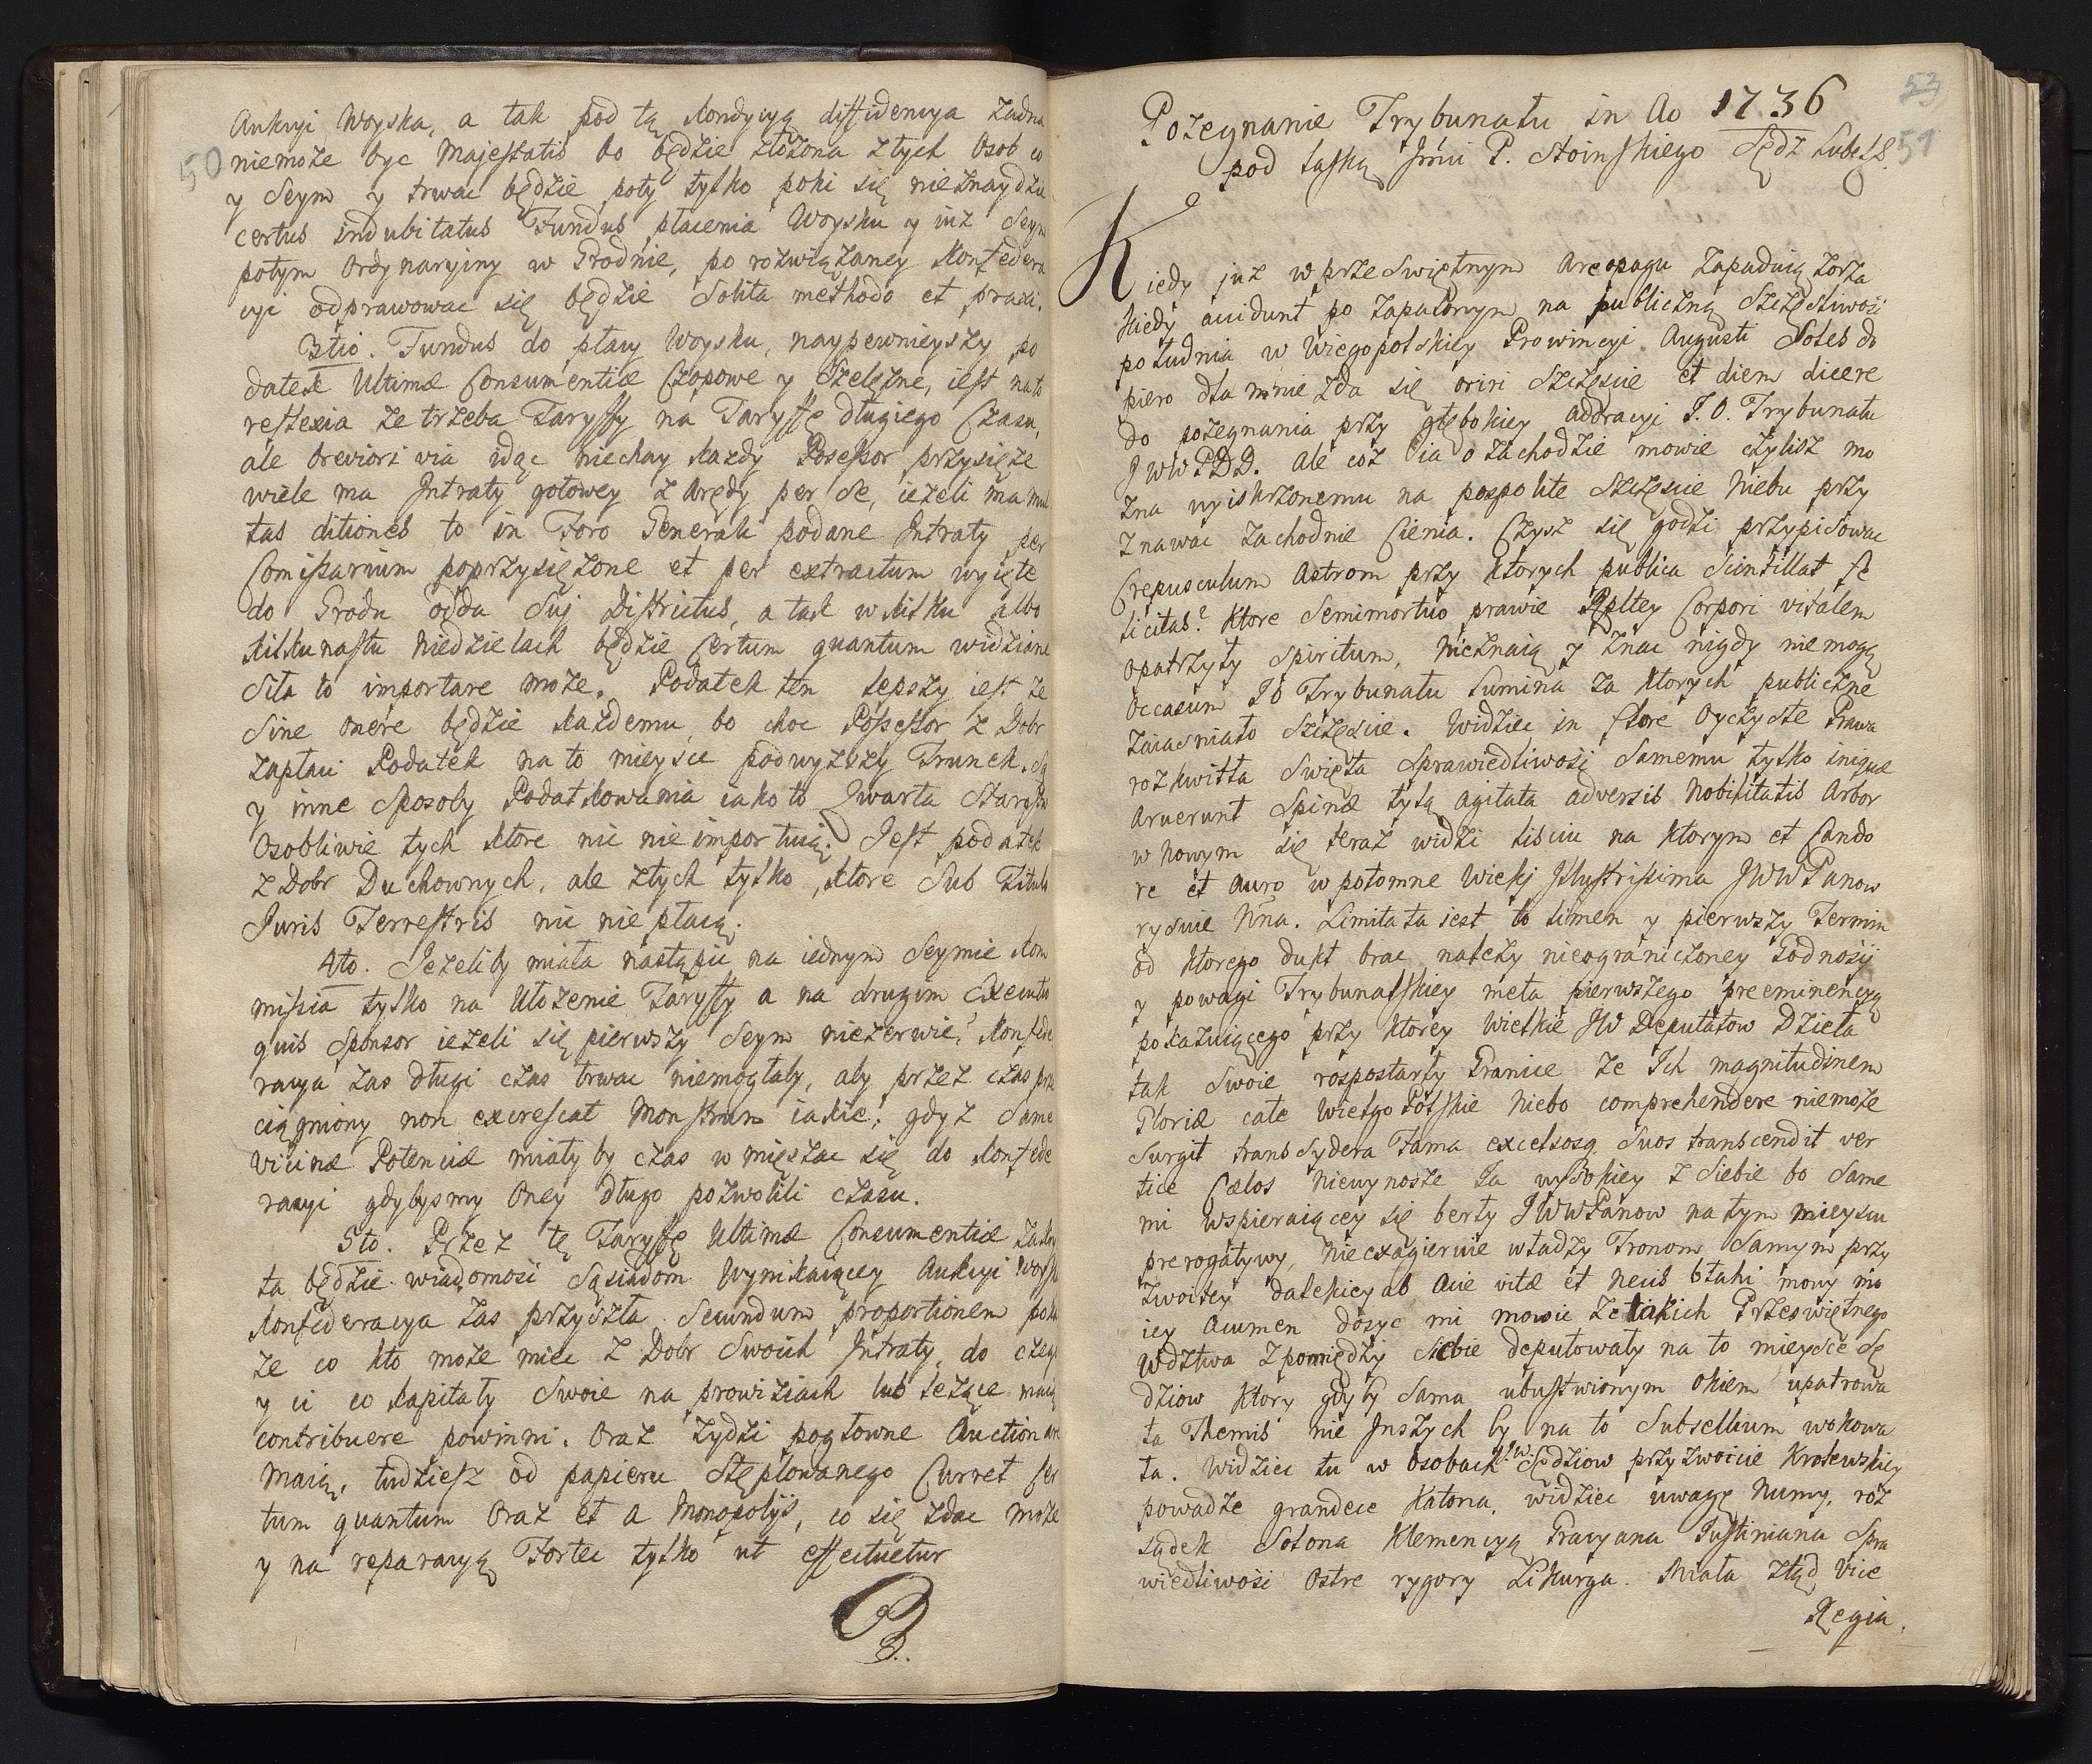 50
Aukcyi Woyska, a tak pod tą Kondycyą diffidencya żadna
niemoże byc Majestatis bo będzie złożona z tych Osob co
y Seym y trwac będzie poty tylko poki się nieznaydzie
certus indubitatus Fundus płacenia Woysku y iuż Seym
potym Ordynaryiny w Grodnie, po rozwiązaney Konfedera
cyi odprawowac się będzie Solita methodo et praxi.
3tio. Fundus do płacy Woysku, naypewnieyszy po
datek Ultimæ Consumentiæ Czopowe y Szelężne, iest na to
reflexia że trzeba Taryffy na Taryffę długiego Czasu,
ale breviori via idąc niechay każdy Possessor przysięże
wiele ma Jntraty gotowey z Arędy per se, ieżeli ma mul
tas ditiones to in Foro Generali podane Jntraty per
Comissarium poprzysiężone et per extractum wyięte
do Grodu odda Sui Districtus, a tak w kilku albo
kilkunastu Niedzielach będzie Certum quantum widziane
Siła to importare może. Podatek ten lepszy iest że
Sine onere będzie każdemu, bo choc Possessor z Dobr
zapłaci Podatek na to mieysce podwyższy Trunek. Są
y inne Sposoby Podatkowania iako to Kwarta Starostw
Osobliwie tych ktore nic nie importuią. Jest podatek
z Dobr Duchownych, ale z tych tylko, ktore Sub Titulo
Juris Terrestris nic nie płacą.
4to. Jeżeliby miała nastąpic na iednym Seymie Kom
missia tylko na Ułożenie Taryffy a na drugim Executio
quis Sponsor ieżeli się pierwszy Seym niezerwie? Konfede
racya zas długi czas trwac niemogłaby, aby przez czas prze
ciągniony non excrescat Monstrum iakie; gdyż Same
Vicinæ Potenciæ miały by czas wmięszac się do Konfede
racyi gdybysmy Oney długo pozwolili czasu.
5to. Przez tę Taryffę Ultimæ Consumentiæ Zakry
ta będzie wiadomosc Sąsiadom Wynikaiącey Aukcyi Woysk
Konfederacya zas przyszła Secundum proportionem poka
że co kto może miec z Dobr Swoich Jntraty, do czego
y ci co kapitały Swoie na prowiziach lub leżące maią
contribuere powinni. Oraz Zydzi pogłowne Auctionare
maią, tudziesz od papieru Stęplowanego Curret Cer
tum quantum Oraz et a Monopolijs, co się zdac może
y na reparacyą Fortec tylko ut effectuetur
53
51
Pożegnanie Trybunału in Ao 1736
pod łaską Jmci P. Stoinskiego Sędz Lubels.
Kiedy już w prześwietnym Areopagu zapadaią zorza
kiedy accidunt po zapalonym na publiczną Szczęsliwosc
południa w Wiegopolskiey Prowincyi Augusti Soles do
piero dla mnie zda się oriri Szczęscie et diem dicere
do pożegnania przy głębokiey adoracyi J.O. Trybunału
JWWPDD. Ale coż ia o zachodzie mowię czylisz mo
żna wyiskrzonemu na pospolite Szczęscie Niebu przy
znawac zachodnie Cienia. Czysz się godzi przypisowac
Crepusculum Astrom przy ktorych publica Scintillat fe
licitas? ktore Semimortuo prawie Rpltey Corpori vitalem
opatrzyły Spiritum, Nieznaią y znac nigdy niemogą
Occasum JO Trybunału Lumina za ktorych publiczne
zaiasniało Szczęscie. Widziec in flore Oyczyste Prawa
rozkwitła Swięta Sprawiedliwosc Samemu tylko iniquæ
Aruerunt Spinæ tylą Agitata adversis Nobilitatis Arbor
w nowym się teraz widzi lisciu na ktorym et Cando
re et Auro w potomne Wieki Jllustrissima JWWPanow
rysuie Nna. Limitata iest to limen y pierwszy Termin
od ktorego dukt brac należy nieograniczoney Godnosci
y powagi Trybunalskiey meta pierwszego preeminencyą
pokazuiącego przy ktorey Wielkie JW Deputatow Dzieła
tak Swoie rospostarły Granice że Ich magnitudinem
Gloriæ całe Wielgo Polskie Niebo comprehendere niemoże
Surgit trans Sydera Fama excelsosq Suos transcendit ver
tice Cælos Niewynoszę Ja wysokiey z Siebie bo Same
mi wspieraiącey się berły JWWPanow na tym mieyscu
prerogatywy, nie exagieruię władzy Tronom Samym przy
zwoitey dalekiey ab Acie vitæ et Necis blahi mowy mo
iey Acumen dosyc mi mowic że takich Przeswietnego
Wdztwa z pomiędzy siebie deputowały na to mieysce Sę
dziow ktory gdyby Sama ubustwionym okiem upatrowa
ła Themis nie Jnszych by na to Subsellium wokowa
ła. Widziec tu w Osobach JW. Sędziow przyzwoicie Krolewskiey
powadze grandece Katona, widziec uwagę Numy, roz
sądek Solona Klemencyą Gracyana Justiniana Spra
wiedliwosc Ostre rygory Likurga. Miała ztąd Vice
Regia.